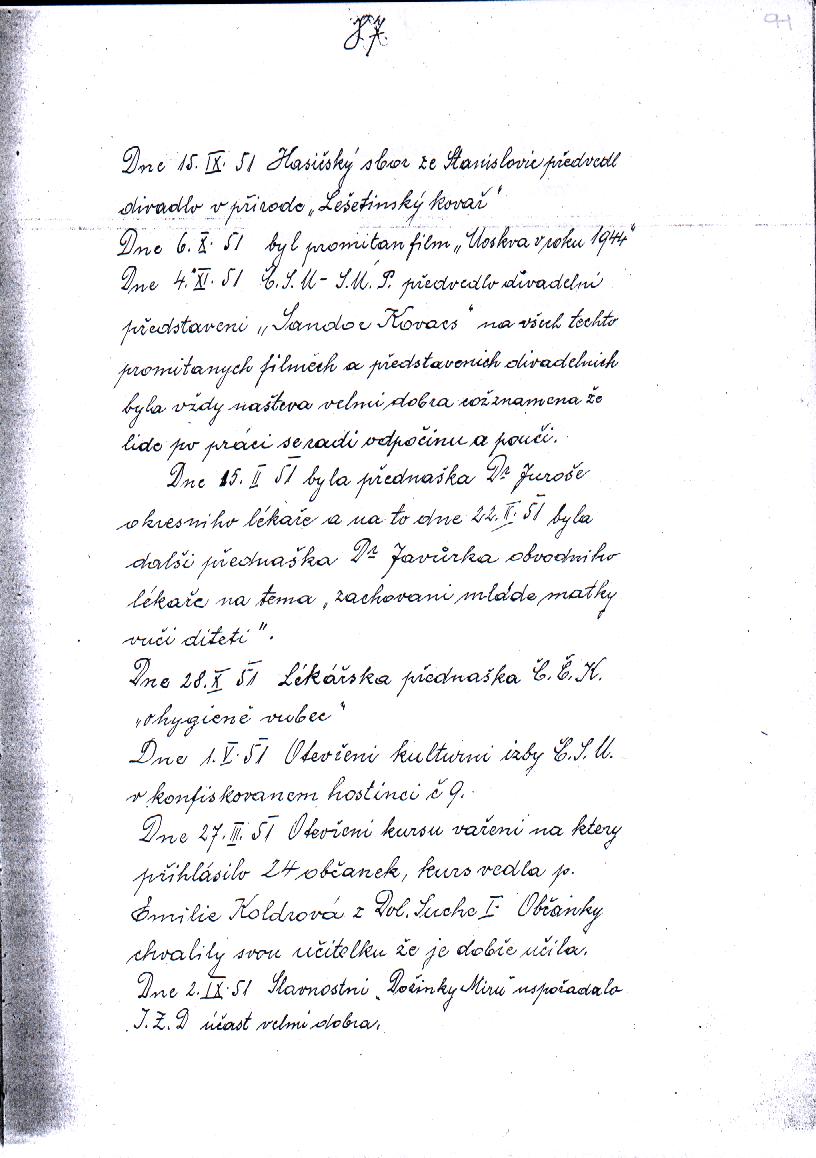 87.
91
Dne 15. IX. 51 Hasičský sbor ze Stanislovic předvedl
divadlo v přirode „Lešetinský kovař"
Dne 6. X. 51 byl promitan film „Moskva v roku 1944"
Dne 4. XI. 51 Č.S.M - S.M.P. předvedlo divadelní
představeni „Sandor Kovacs" na všech techto
promitanych filměch a představenich divadelnich
byla vždy našteva velmi dobra cožznamena že
lide po práci se radi odpočinu a pouči.
Dne 15. II 51 byla přednaška Dr Juroše
okresniho lékaře a na to dne 22. II. 51 byla
dalši přednaška Dr Javůrka obvodniho
lékaře na tema „zachovani mláde matky
vuči diteti".
Dne 28. X 51 Lékářska přednaška Č.Č.K.
„ohygieně vubec"
Dne 1. V. 51 Otevřeni kulturni izby Č.S.M.
v konfiskovanem hostinci č 9.
Dne 27. III. 51 Otevřeni kursu vařeni na ktery
přihlásilo 24 občanek, kurs vedla p.
Emilie Koldrová z Dol. Suche I. Občanky
chvalily svou učitelku že je dobře učila.
Dne 2. IX. 51 Slavnostni „Dožinky Miru" uspořadalo
J.Z.D účast velmi dobra.